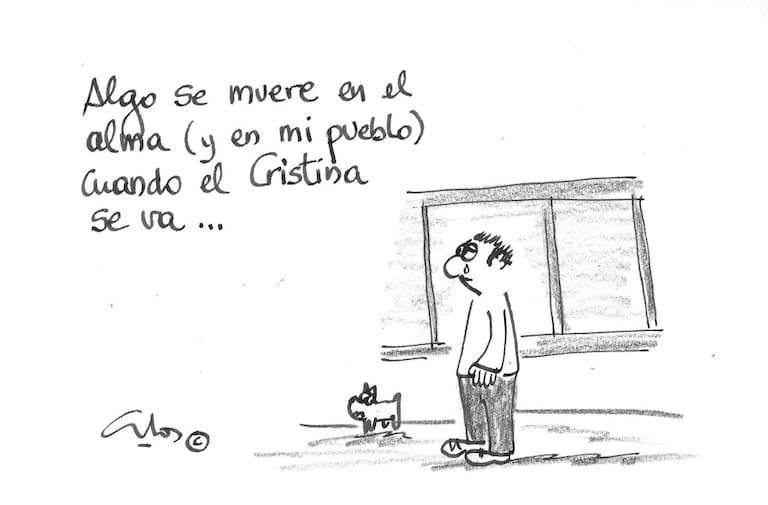 Algo se muere en el
alma (y en mi pueblo)
Cuando el Cristina
se va ...
©